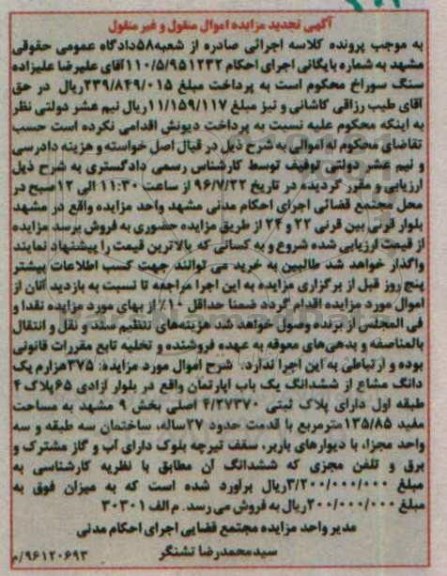 آگهی تجدید مزایده اموال منقول و غیر منقول
به موجب پرونده کلاسه اجرائی صادره از شعبه۵۸دادگاه عمومی حقوقی
مشهد به شماره بایگانی اجرای احکام ۱۱۰/۵/۹۵۱۲۳۲آقای علیرضا علیزاده
سنگ سوراخ محکوم است به پرداخت مبلغ ۲۳۹/۸۴۹/۰۱۵ریال در حق
آقای طیب رزاقی کاشانی و نیز مبلغ ۱۱/۱۵۹/۱۱۷ریال نیم عشر دولتی نظر
به اینکه محکوم علیه نسبت به پرداخت دیونش اقدامی نکرده است حسب
تقاضای محکوم له اموالی به شرح ذیل در قبال اصل خواسته و هزینه دادرسی
و نیم عشر دولتی توقیف توسط کارشناس رسمی دادگستری به شرح ذیل
ارزیابی و مقرر گردیده در تاریخ ۹۶/۷/۲۲ از ساعت ۱۱:۳۰ الی ۱۲صبح در
محل مجتمع قضائی اجرای احکام مدنی مشهد واحد مزایده واقع در مشهد
بلوار قرنی بین قرنی ۲۲ و ۲۴ از طریق مزایده حضوری به فروش برسد مزایده
از قیمت ارزیابی شده شروع و به کسانی که بالاترین قیمت را پیشنهاد نمایند
واگذار خواهد شد طالبین به خرید می توانند جهت کسب اطلاعات بیشتر
پنج روز قبل از برگزاری مزایده به این اجرا مراجعه تا نسبت به بازدید آنان از
اموال مورد مزایده اقدام گردد ضمنا حداقل ۱۰٪ از بهای مورد مزایده نقدا و
فی المجلس از برنده وصول خواهد شد هزینه‌های تنظیم سند و نقل و انتقال
بالمناصفه و بدهی‌های معوقه به عهده فروشنده و تخلیه تابع مقررات قانونی
بوده و ارتباطی به این اجرا ندارد. شرح اموال مورد مزایده: ۳۷۵هزارم یک
دانگ مشاع از ششدانگ یک باب اپارتمان واقع در بلوار ازادی ۶۵پلاک ۴
طبقه اول دارای پلاک ثبتی ۴/۲۷۳۷۰ اصلی بخش ۹ مشهد به مساحت
مفید ۱۳۵/۸۵مترمربع با قدمت حدود ۲۷ساله، ساختمان سه طبقه و سه
واحد مجزا، با دیوارهای باربر، سقف تیرچه بلوک دارای آب و گاز مشترک و
برق و تلفن مجزی که ششدانگ آن مطابق با نظریه کارشناسی به
مبلغ ۳/۲۰۰/۰۰۰/۰۰۰ریال براورد شده است که به میزان فوق به
مبلغ ۲۰۰/۰۰۰/۰۰۰ریال به فروش می رسد. م الف ۳۰۳۰۱
مدیر واحد مزایده مجتمع قضایی اجرای احکام مدنی
سیدمحمدرضا تشنگر
۹۶۱۲۰۶۹۳/م